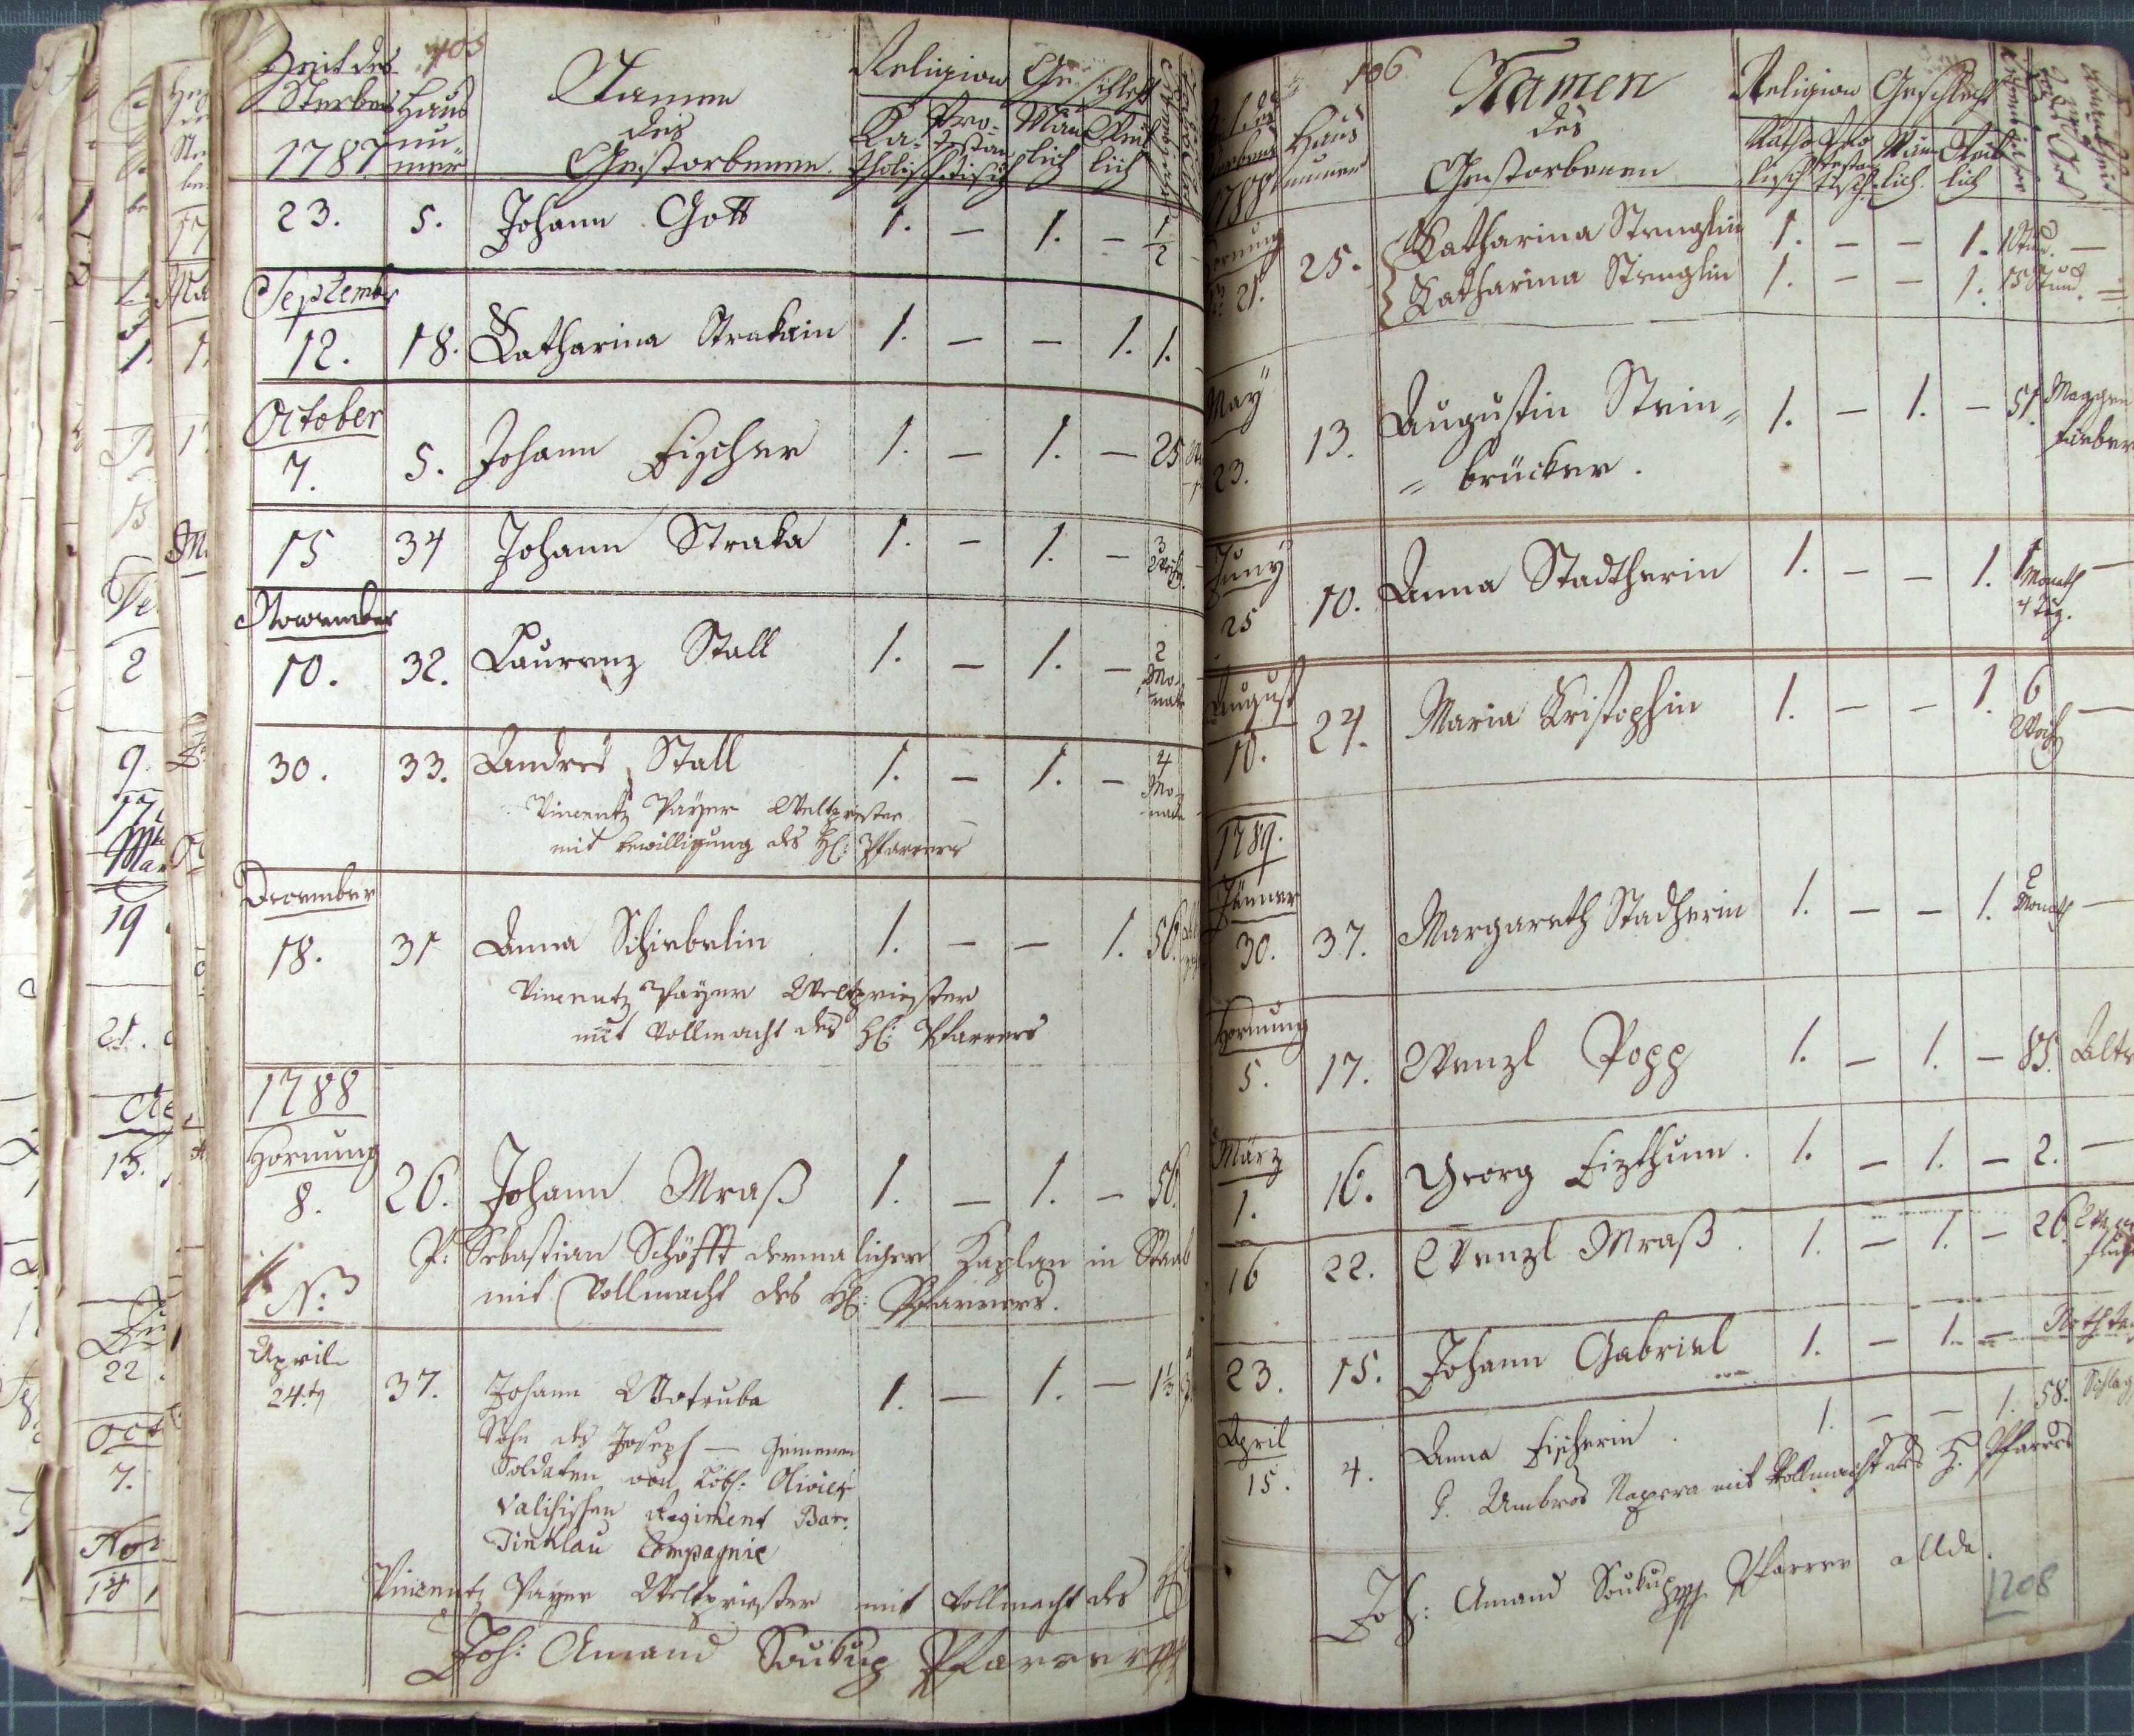 105
Zeit des
Sterbens
1787
Haus
nu=
mer
Namen
des
Gestorbenen.
Religion
Ka=
tholisch
Pro=
testan
tisch
Geschlecht
Män
lich
Weib
lich
23. 5. Johann Gott 1. — 1. — 1/2
Septembr
12. 18. Katharina Strakain 1. — — 1. 1.
October
7. 5. Johann Fischer 1. — 1. — 25
15 34 Johann Straka 1. — 1. — 3
November
10. 32. Laurenz Stall 1. — 1. — 2
Mo=
nate
30. 33. Andreë Stall 1. — 1. — 4
Mo=
nate
Vincentz Payer Weltpriester
mit bewilligung des H: Pfarrers
December
18. 31 Anna Schiebelin 1. — — 1. 56.
Vincentz Payer Weltpriester
mit Vollmacht des H: Pfarrers
1788
Hornung
8. 26. Johann Mraß 1. — 1. — 56.
P: Sebastian Schöfft dermalicher Kaplan in Staab
mit Vollmacht des H: Pfarrers.
April
24.ten 37. Johann Wotruba 1. — 1. — 1 1/3
Sohn des Joseph — Gemeinen
Soldaten von Löbl: Olivier
Valisischen Regiment Bar:
Tinklau Compagnie
Vincentz Payer Weltpriester mit Vollmacht des H
Joh: Amand Soukup Pfarrer
106
Haus
numer
Namen
des
Gestorbenen
Religion
Katho
lisch
Pro
testan
tisch
Geschlecht
Män
lich
Weib
lich
Hornung
21. 25. Katharina Stenglin 1. — — 1. 1 Stund. —
Katharina Stenglin 1. — — 1. 15 Stund. —
May
23. 13. Augustin Stein= 1. — 1. — 51. Maagen
= brücker. fieber
Juny
25 10. Anna Stadtherin 1. — — 1. 1 —
Monath
4 Tag.
August
10. 24. Maria Kristophin 1. — — 1. 6 —
Woch
1789.
Jänner
30. 37. Margareth Stadherin 1. — — 1. 2 —
Monath
Hornung
5. 17. Wenzl Popp 1. — 1. — 85. Alter
März
1. 16. Georg Fizthum. 1. — 1. — 2. —
16 22. Wenzl Mraß. 1. — 1. — 26.
23. 15. Johann Gabriel 1. — 1. —
April
15. 4. Anna Fischerin. 1. — — 1. 58. Schlag
P. Ambros mit Vollmacht des H. Pfarrers
Joh: Amand Soukup Pfarrer allda.
1208